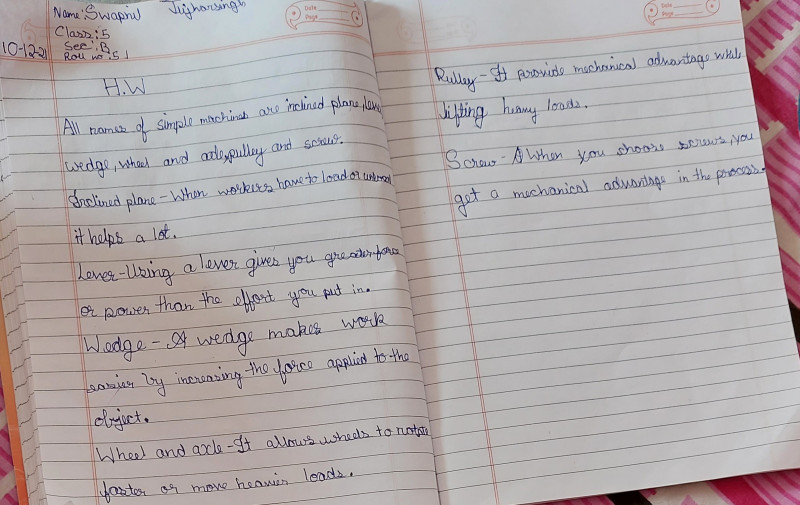 Name: Swapnil Jujharsingh
Class: 5
Sec: B
Roll no: 51
10-12-21
H.W
All names of simple machines are inclined plane, lever
wedge, wheel and axle, pulley and screw.
Inclined plane - When workers have to load or unload
it helps a lot.
Lever - Using a lever gives you greater force
or power than the effort you put in.
Wedge - A wedge makes work
easier by increasing the force applied to the
object.
Wheel and axle - It allows wheels to rotate
faster or move heavier loads.
Date
Page
Date
Page
Pulley - It provide mechanical advantage while
lifting heavy loads.
Screw - A When you choose screws, you
get a mechanical advantage in the process.